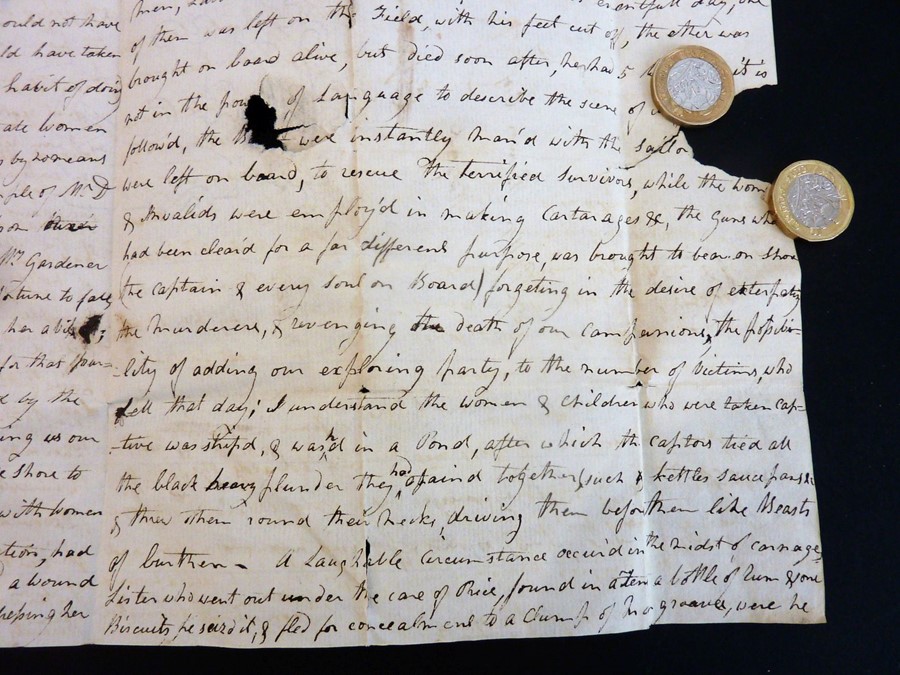 ould not have
ld have taken
habit of doing
ate women
by no means
mple of Mr D
son
Mrs Gardener
fortune to fall
her a bil
for that pur=
d by the
ing us our
e shore to
with women
ation, had
a wound
keeping her
men,
of them was left on the Field, with his feet cut off, the other was
brought on board alive, but died soon after, he had 5 it is
not in the pow of Language to describe the scene of
follow'd, the B were instantly man'd with the sailo
were left on board, to rescue the terrified survivors, while the wom
& Invalids were employ'd in making Cartarages &c, the Guns wh
had been clear'd for a far different purpose, was brought to bear on shou
the captain & every soul on Board) forgeting in the desire of exterpating
the murderers, & revenging the death of our campanions, the possibi=
=lity of adding our exploring party, to the number of Victims, who
fell that day; I understand the women & children who were taken cap=
=tive was strip'd, & wash'd in a Pond, after which the captors tied all
the black heavy plunder they had obtaind together (such as kettles saucepans &c
& threw them round their necks, driving them before them like Beasts
of burthen - A Laughable Circumstance occurid in the midst of carnage,
Sister who went out under the care of Price, found in a Tent a bottle of Rum & some
Biscuits he seizd it, & fled for concealment to a Clump of Mangroaves, were he